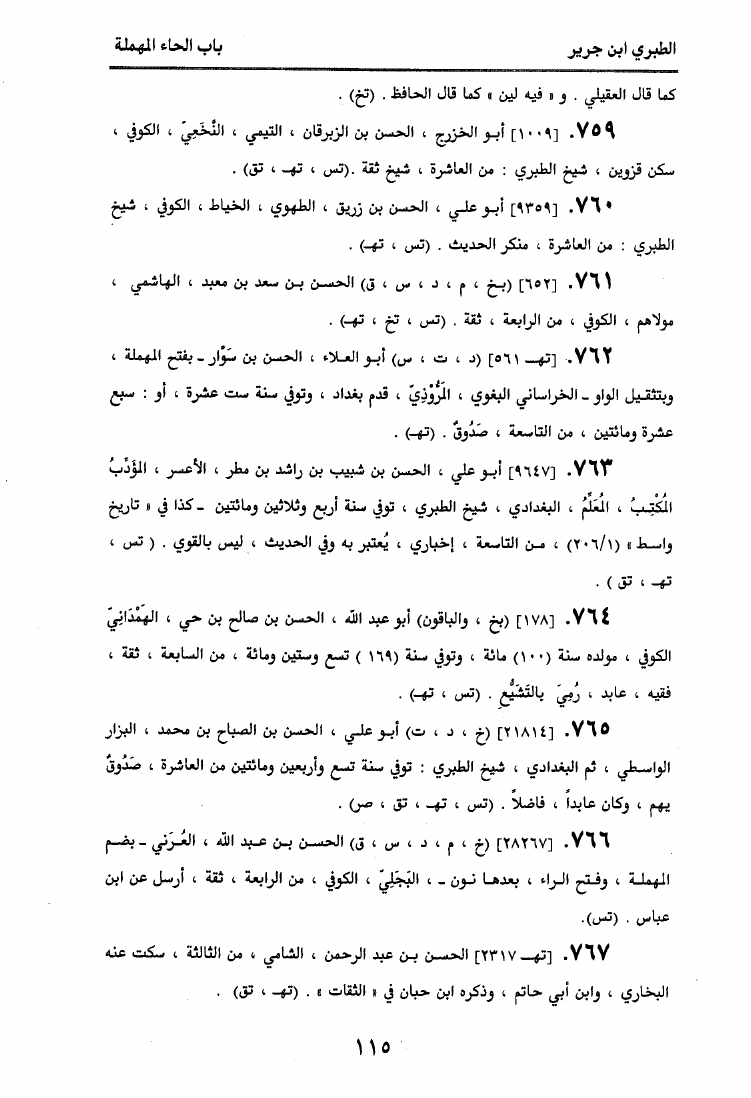 الطبري ابن جرير باب الحاء المهملة
كما قال العقيلي . و « فيه لين » كما قال الحافظ . (تخ) .
٧٥٩. [١٠٠٩] أبو الخزرج ، الحسن بن الزبرقان ، التيمي ، النَّخَعِيّ ، الكوفي ،
سكن قزوين ، شيخ الطبري : من العاشرة ، شيخ ثقة .(تس ، تهـ ، تق) .
٧٦٠. [٩٣٥٩] أبو علي ، الحسن بن زريق ، الطهوي ، الخياط ، الكوفي ، شيخ
الطبري : من العاشرة ، منكر الحديث . (تس ، تهـ) .
٧٦١. [٦٥٢] (بخ ، م ، د ، س ، ق) الحسن بن سعد بن معبد ، الهاشمي ،
مولاهم ، الكوفي ، من الرابعة ، ثقة . (تس ، تخ ، تهـ) .
٧٦٢. [تهـ ٥٦١] (د ، ت ، س) أبو العلاء ، الحسن بن سَوَّار ـ بفتح المهملة ،
وبتثقيل الواو ـ الخراساني البغوي ، المَرُّوْذِيّ ، قدم بغداد ، وتوفي سنة ست عشرة ، أو : سبع
عشرة ومائتين ، من التاسعة ، صَدُوقٌ . (تهـ) .
٧٦٣. [٩٦٤٧] أبو علي ، الحسن بن شبيب بن راشد بن مطر ، الأعسر ، المؤَدِّبُ
المُكْتِبُ ، المُعَلِّمُ ، البغدادي ، شيخ الطبري ، توفي سنة أربع وثلاثين ومائتين ـ كذا في « تاريخ
واسط » (٢٠٦/١) ، من التاسعة ، إخباري ، يُعتبر به وفي الحديث ، ليس بالقوي . ( تس ،
تهـ ، تق ) .
٧٦٤. [١٧٨] (بخ ، والباقون) أبو عبد الله ، الحسن بن صالح بن حي ، الهَمْدَانِيّ
الكوفي ، مولده سنة (١٠٠) مائة ، وتوفي سنة (١٦٩ ) تسع وستين ومائة ، من السابعة ، ثقة ،
فقيه ، عابد ، رُمِيَ بالتَّشَيُّعِ . (تس ، تهـ) .
٧٦٥. [٢١٨١٤] (خ ، د ، ت) أبو علي ، الحسن بن الصباح بن محمد ، البزار
الواسطي ، ثم البغدادي ، شيخ الطبري : توفي سنة تسع وأربعين ومائتين من العاشرة ، صَدُوقٌ
يهم ، وكان عابداً ، فاضلاً . (تس ، تهـ ، تق ، صر) .
٧٦٦. [٢٨٢٦٧] (خ ، م ، د ، س ، ق) الحسن بن عبد الله ، العُرَني ـ بضم
المهملة ، وفتح الراء ، بعدها نون ـ ، البَجَلِيّ ، الكوفي ، من الرابعة ، ثقة ، أرسل عن ابن
عباس . (تس).
٧٦٧. [تهـ ٢٣١٧] الحسن بن عبد الرحمن ، الشامي ، من الثالثة ، سكت عنه
البخاري ، وابن أبي حاتم ، وذكره ابن حبان في « الثقات » . (تهـ ، تق) .
١١٥